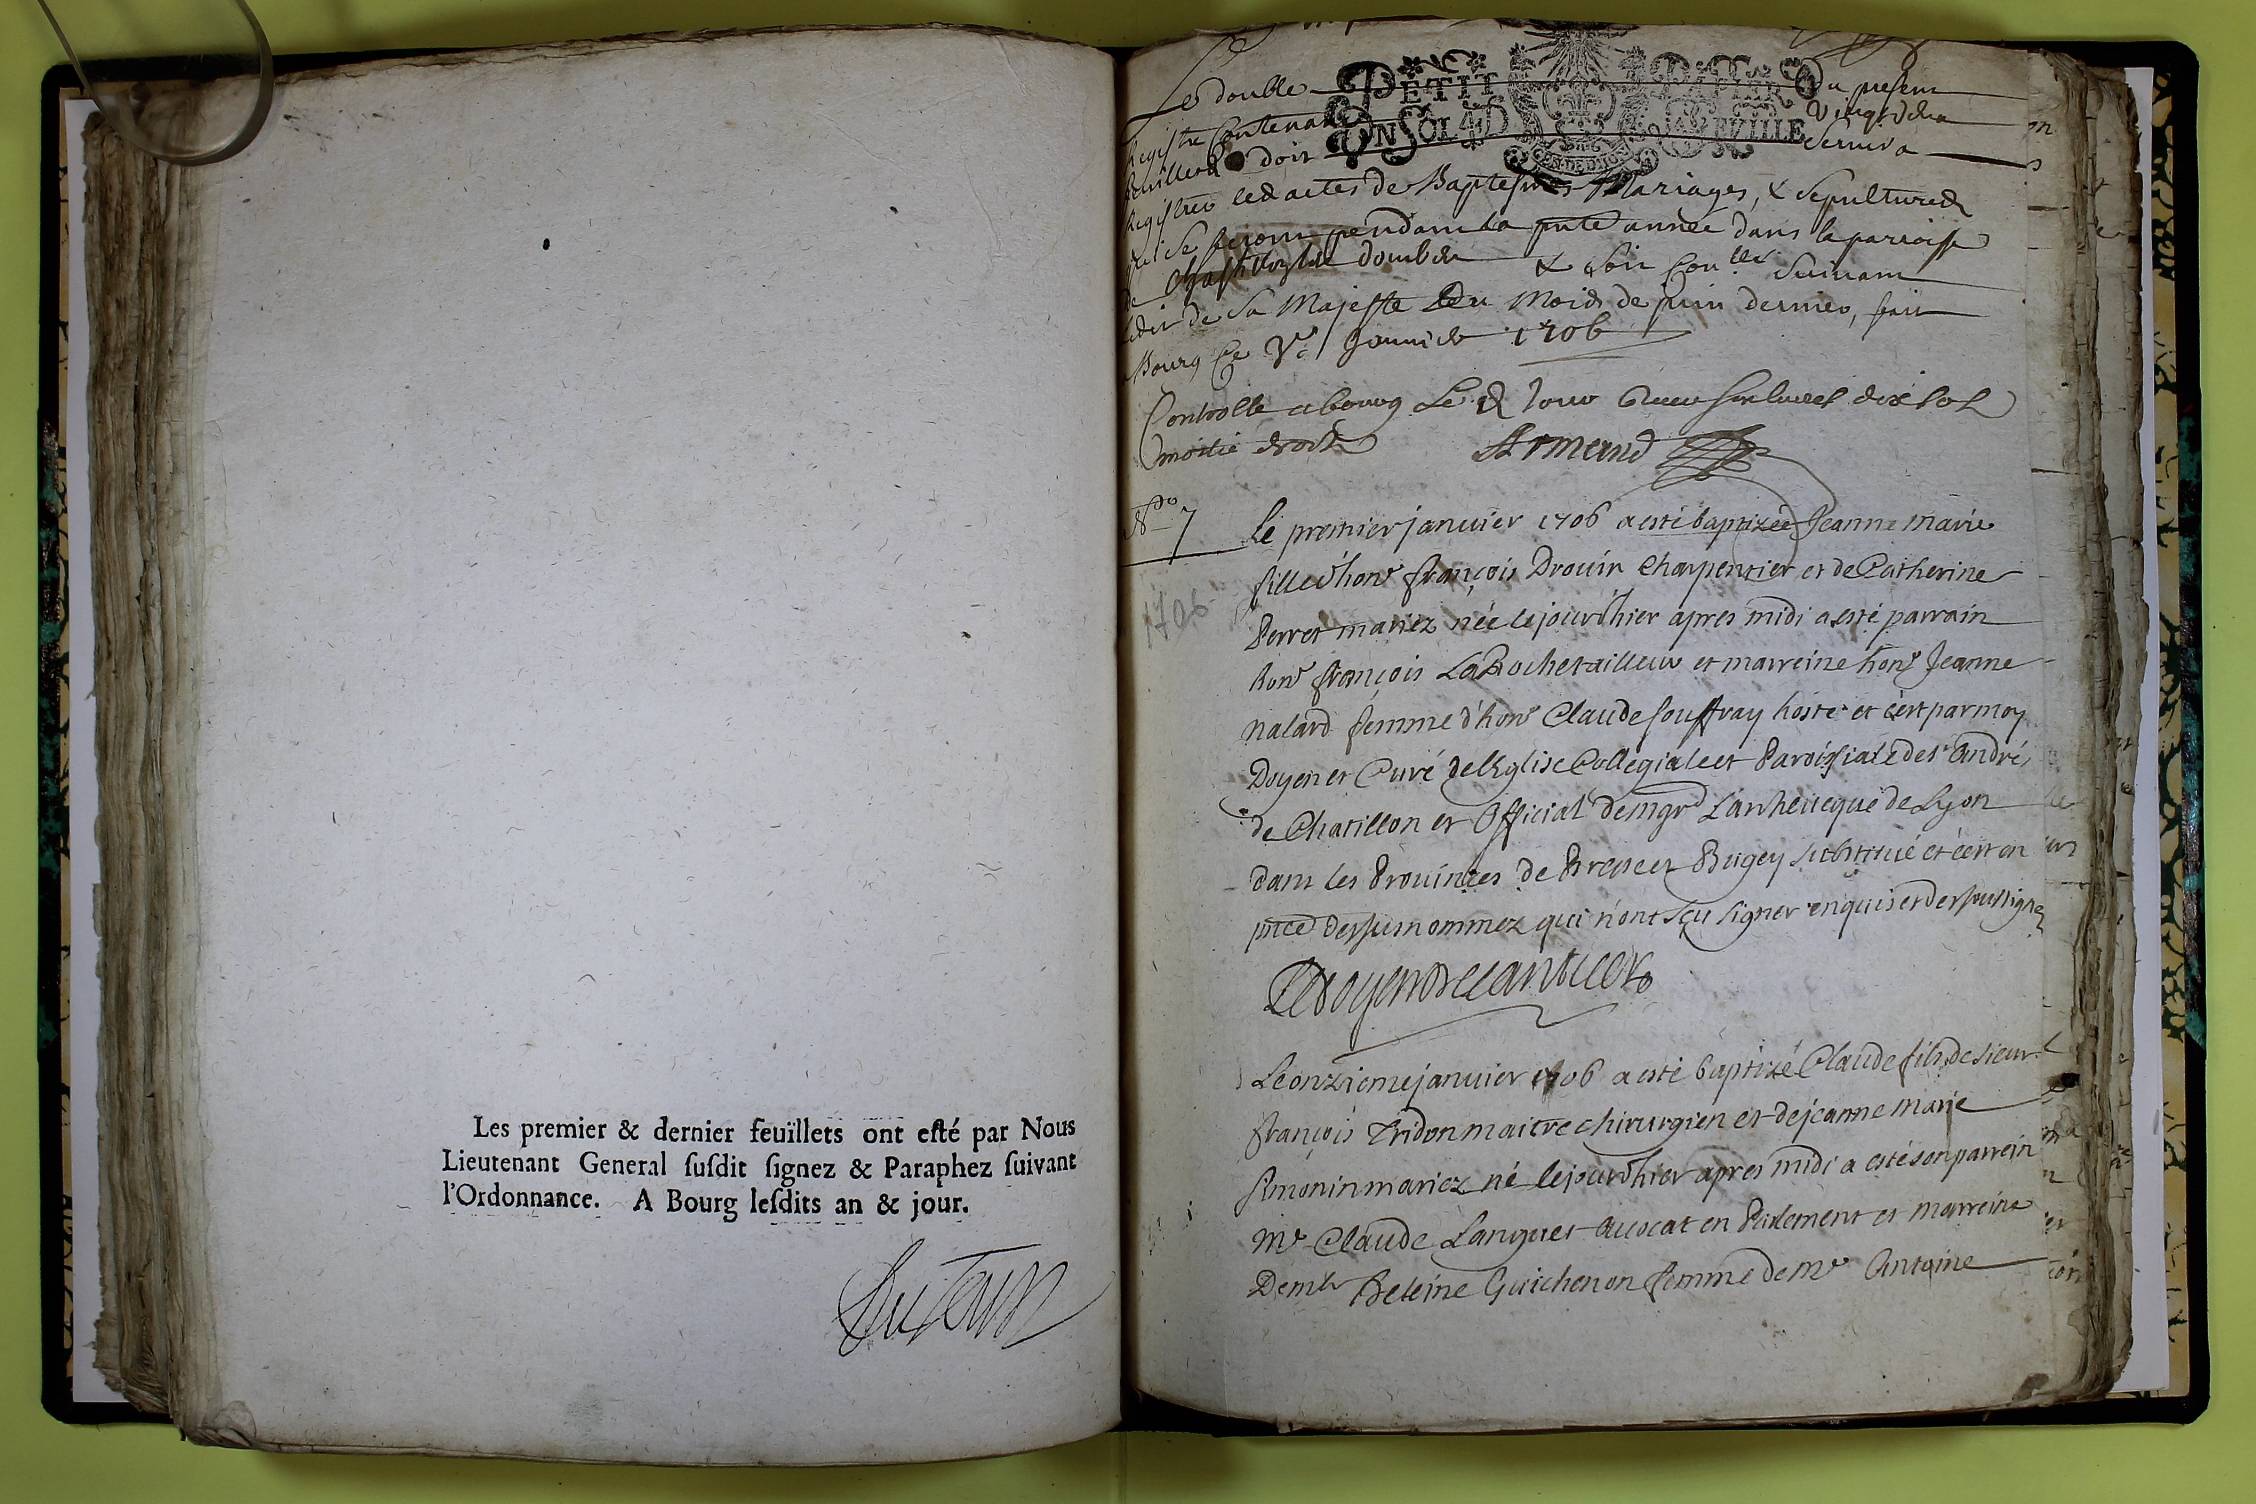 Les premier & dernier feuïllets ont eſté par Nous
Lieutenant General ſuſdit ſignez & Paraphez ſuivant
l'Ordonnance. A Bourg leſdits an & jour.
PETIT PAPIER
UN SOL 4 D LA FEVILLE
GEN. DE DIION
Le double du present
Registre Contenant Vingt deux
feuilletz doit Servir a
Registrer les actes de Baptesmes Mariages, & Sepultures
qui se feront pendant la pnte année dans la parroisse
de Chastillon les dombes & Soit Con.llé Suivant
Ledit de Sa Majeste du Mois de juin dernier, fait
Bourg Ce Ve Janvier 1706
Controlle a bourg Le dix sol
moitie droit
Armand
No 7
1706
Le premier janvier 1706 a esté baptizée Jeanne Marie
fille d'hone françois Drouin Charpentier et de Catherine
Perret mariez née le jour d'hier apres midi a esté parrain
hone françois LaRoche tailleur et marreine hone Jeanne
nalard femme d'hone Claude souffray hoste et c'est par moy
Doyen et Curé de l'Eglise Collegiale et Paroissiale de st André
de Chatillon et Official de mgrd L'archevequé de Lyon
dans les Provinces de Bresse et Bugey substitué et c'est en
pnce des susnommez qui n'ont sçu signer enquis et des soussignez
Le doyen de Chantillon
Le onzieme janvier 1706 a esté baptizé Claude fils de sieur
françois Tridon maitre chirurgien et de jeanne marie
simonin mariez né le jour d'hier apres midi a esté son parrein
Me Claude Languet avocat en Parlement et marreine
Demlle Heleine Guichenon femme de Me Antoine